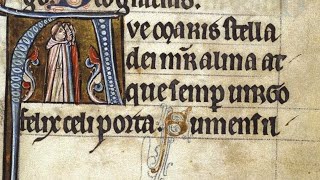 Ave maris stella
dei mr̄ alma at
que semp uirgo
felix celi porta. Sumens il